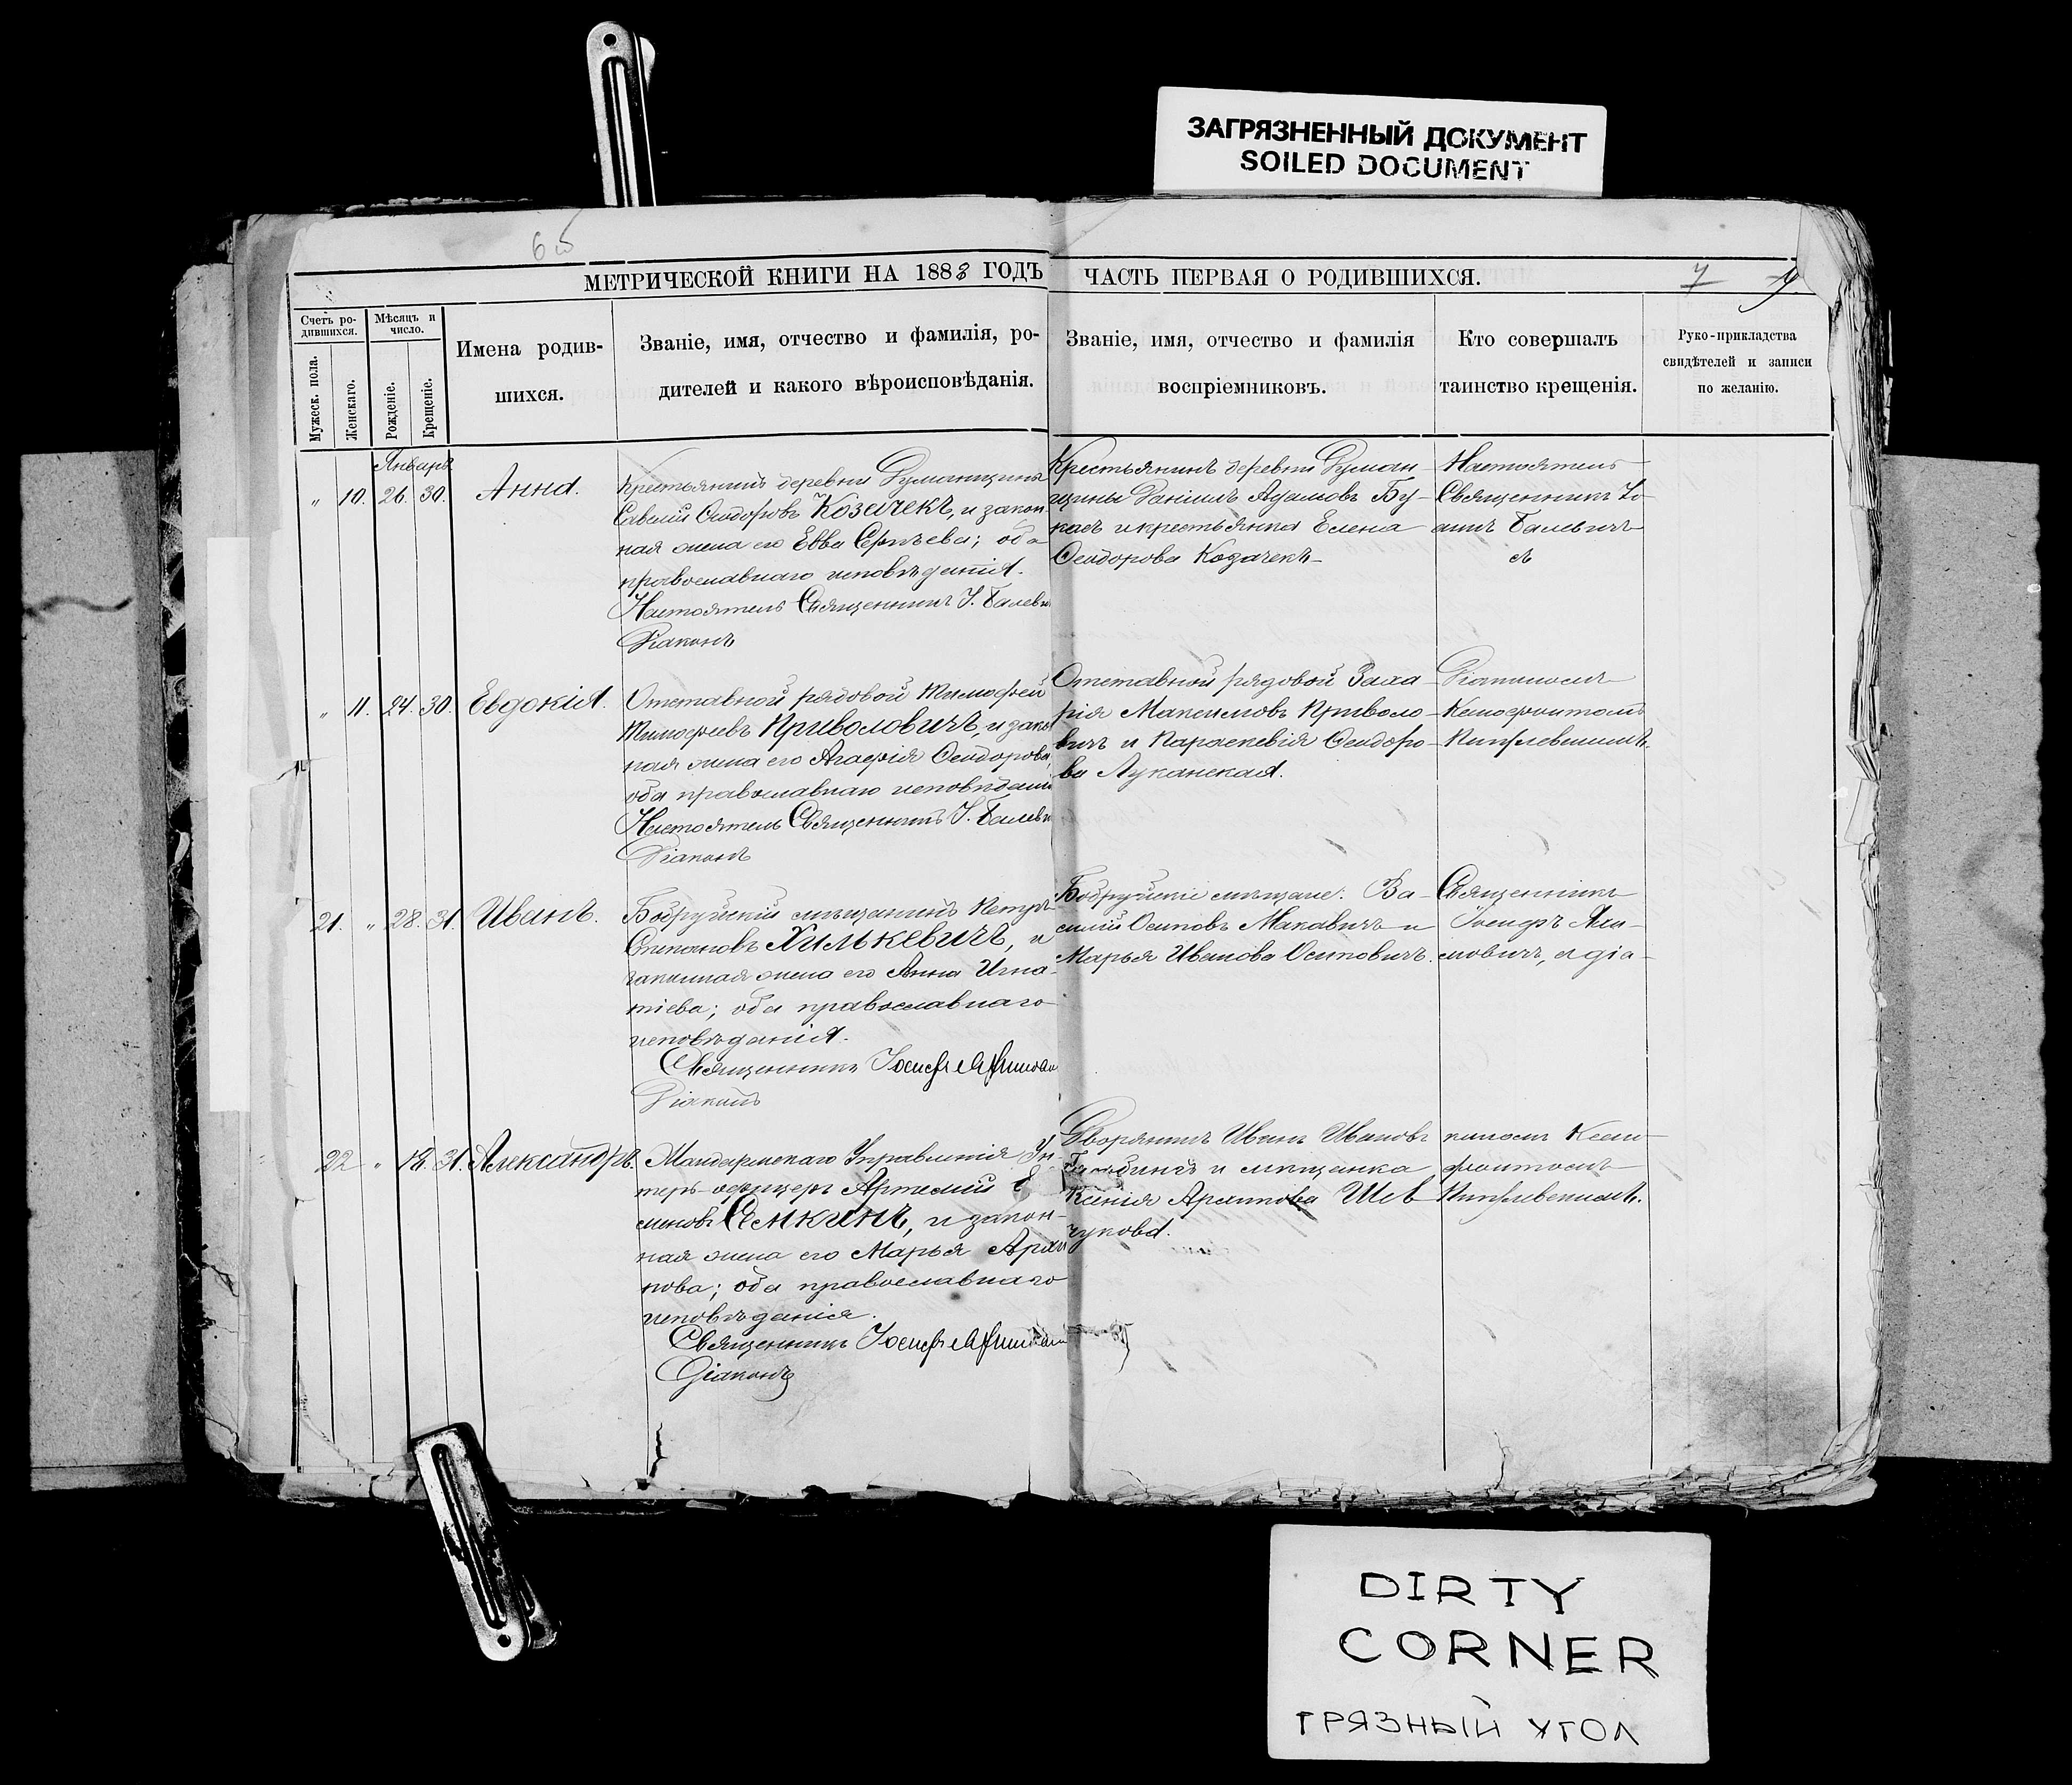 ЗАГРЯЗНЕННЫЙ ДОКУМЕНТ
SOILED DOCUMENT
МЕТРИЧЕСКОЙ КНИГИ НА 1883 ГОДЪ
ЧАСТЬ ПЕРВАЯ О РОДИВШИХСЯ.
7
Счетъ ро-
дившихся.
Мужеск. пола.
Женскаго.
Мѣсяцъ и
число.
Рожденіе.
Крещеніе.
Имена родив-
шихся.
Званіе, имя, отчество и фамилія, ро-
дителей и какого вѣроисповѣданія.
Званіе, имя, отчество и фамилія
воспріемниковъ.
Кто совершалъ
таинство крещенія.
Руко-прикладства
свидѣтелей и записи
по желанію.
Январь
„ 10. 26. 30. Анна.
Крестьянинъ деревни Думанщина
Савелій Ѳеодоровъ Козачекъ, и закон-
ная жена его Евва Сергѣева; оба
православнаго исповѣданія.
Настоятель Священникъ І. Балевич
Діаконъ
Крестьянинъ деревни Думан-
щины Даніилъ Адамовъ Бу-
касъ и крестьянка Елена
Ѳеодорова Козачекъ
Настоятель
Священникъ Іо-
аннъ Балевичъ
съ
„ 11. 24. 30. Евдокія.
Отставной рядовой Тимофей
Тимофеевъ Приволовичъ, и закон
ная жена его Агафія Ѳеодорова,
оба православнаго исповѣданія
Настоятель Священникъ І. Балевич
Діаконъ
Отставной рядовой Заха-
рія Максимовъ Приволо-
вичъ и Параскевія Ѳеодоро-
ва Луканская.
Діакономъ
Ксенофонтомъ
21. „ 28. 31. Иванъ.
Бобруйскій мѣщанинъ Петръ
Степановъ Хилькевичъ, и
законная жена его Анна Игна-
тіева; оба православнаго
исповѣданія.
Священникъ Іосифъ
Діаконъ
Бобруйскіе мѣщане: Ва-
силій Осиповъ Макавичъ и
Марья Иванова Осиповичъ.
Священникъ
Іосифъ Яхи-
мовичъ, съ діа-
22 „ 18. 31. Александръ.
Жандармскаго Управленія Ун-
теръ-офицеръ Артемій
Семкинъ, и закон-
ная жена его Марья Архи
пова; оба православнаго
исповѣданія.
Священникъ Іосифъ
Діаконъ
Дворянинъ Иванъ Ивановъ
и мѣщанка
Ксенія Архипова Шев
чукова.
кономъ Ксено-
фонтомъ
DIRTY
CORNER
ГРЯЗНЫЙ УГОЛ